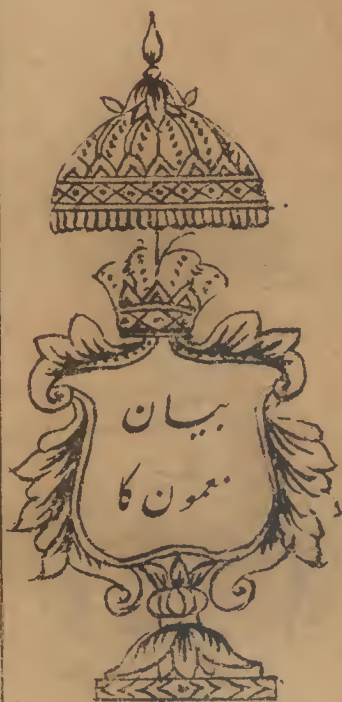 بیان
نغمون کا